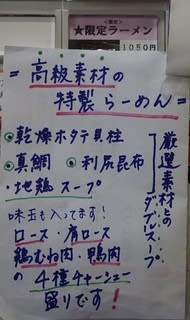 <限定>
★限定ラーメン
1050円
=高級素材の
特製らーめん=
◎乾燥ホタテ貝柱
◎真鯛 ◎利尻昆布
・地鶏スープ
厳選素材との
ダブルスープ
味玉も入ってます!
ロース・肩ロース
鶏むね肉・鴨肉
の4種チャーシュー
盛りです!